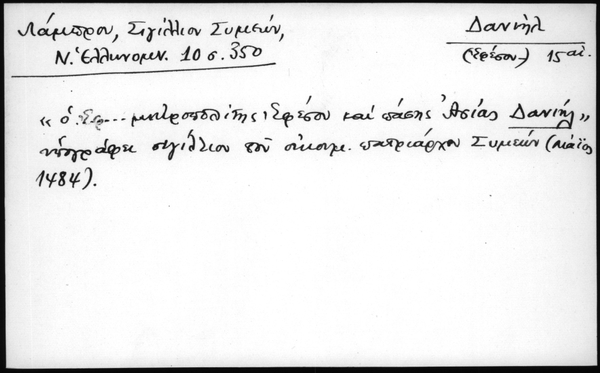 Λάμπρου, Σιγίλλιον Συμεών,
Ν. Ἑλληνομν. 10 σ. 350
Δανιὴλ
(Ἐφέσου) 15 αἰ.
« ὁ Ἐφ... μητροπολίτης Ἐφέσου καὶ πάσης Ἀσίας Δανιήλ »
ὑπογράφει σιγίλλιον τοῦ οἰκουμ. πατριάρχου Συμεών (Μάϊος
1484).